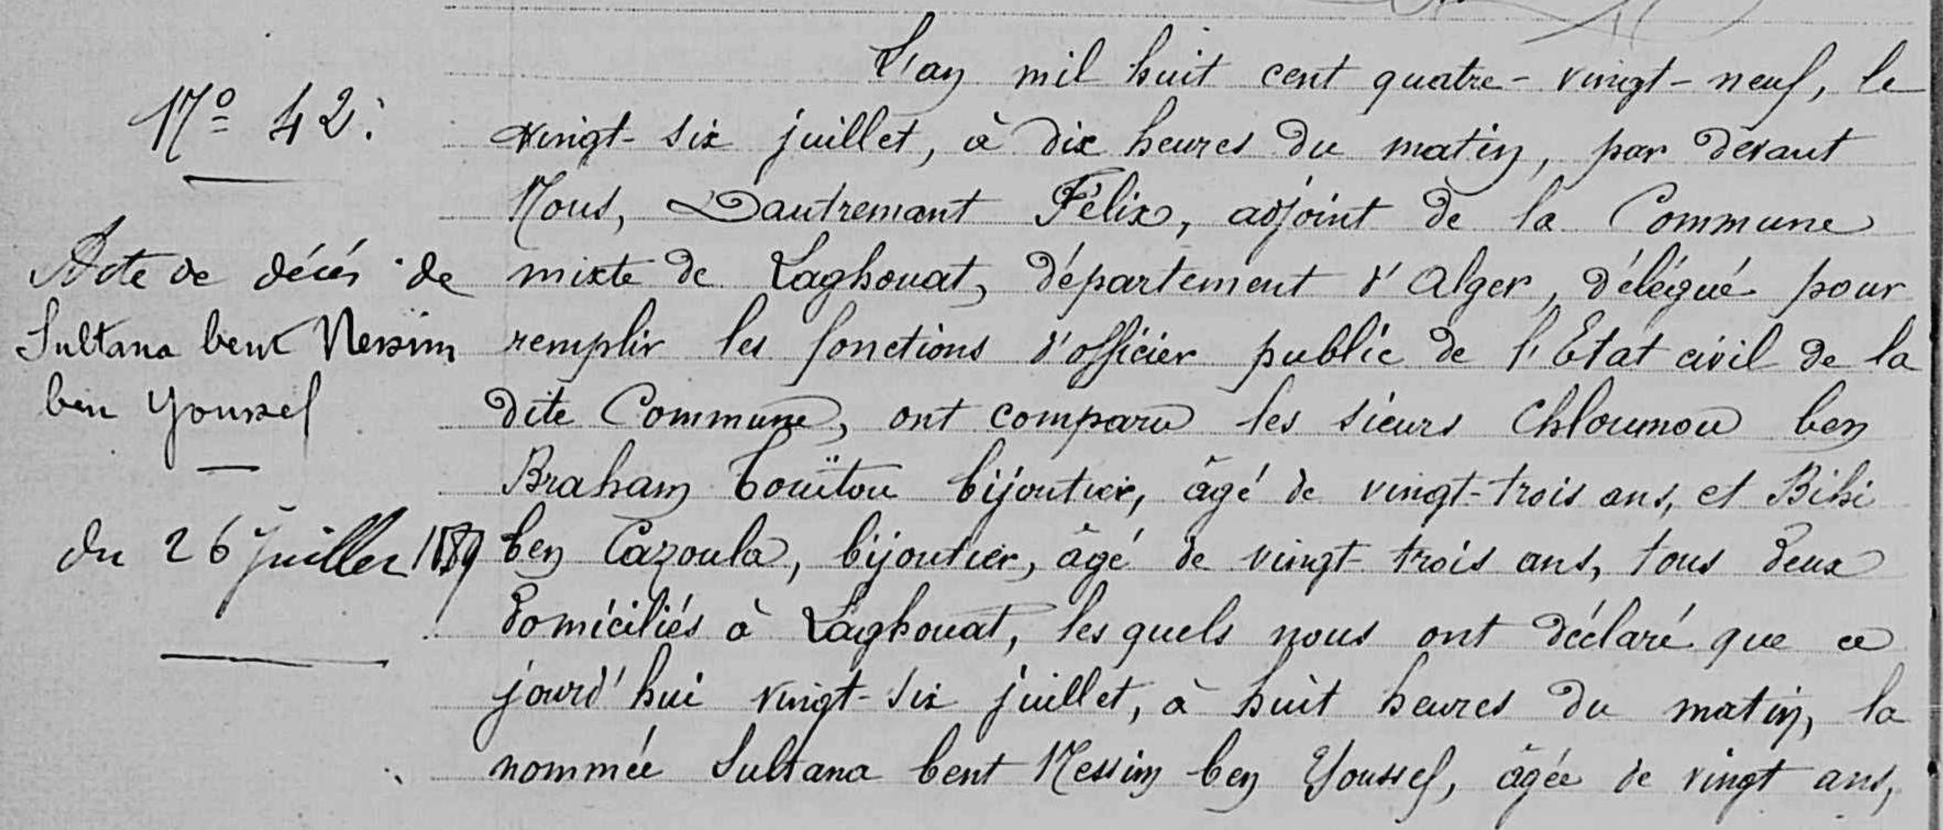 N° 42.
Acte de décès de
Sultana bent Nessim
ben Youssef
du 26 Juillet 1889
L'an mil huit cent quatre-vingt-neuf, le
vingt-six juillet, à dix heures du matin, par devant
Nous, Dautremant Félix, adjoint de la Commune
mixte de Laghouat, département d'Alger, délégué pour
remplir les fonctions d'officier public de l'Etat civil de la
dite Commune, ont comparu les sieurs Chloumou ben
Braham Touïtou bijoutier, âgé de vingt-trois ans, et Bihi
ben Cazoula, bijoutier, âgé de vingt-trois ans, tous deux
domiciliés à Laghouat, les quels nous ont déclaré que ce
jourd'hui vingt-six juillet, à huit heures du matin, la
nommée Sultana bent Nessim ben Youssef, âgée de vingt ans,